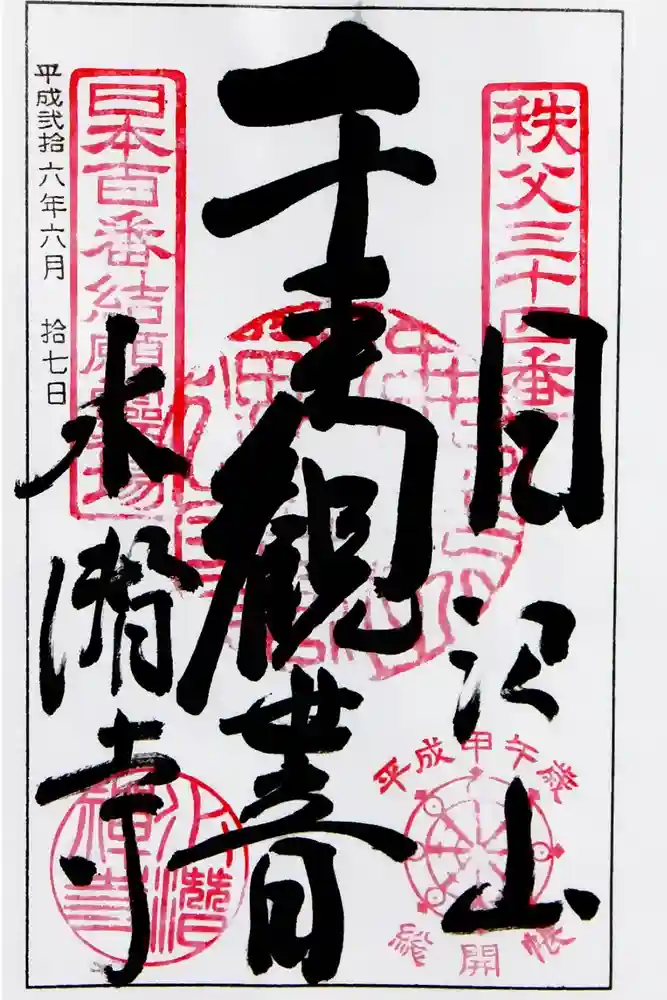 秩父三十四番
日沢山
平成甲午歳
総開帳
千手観世音
日本百番結願霊場
水潜寺
水潜寺
平成弐拾六年六月 拾七日